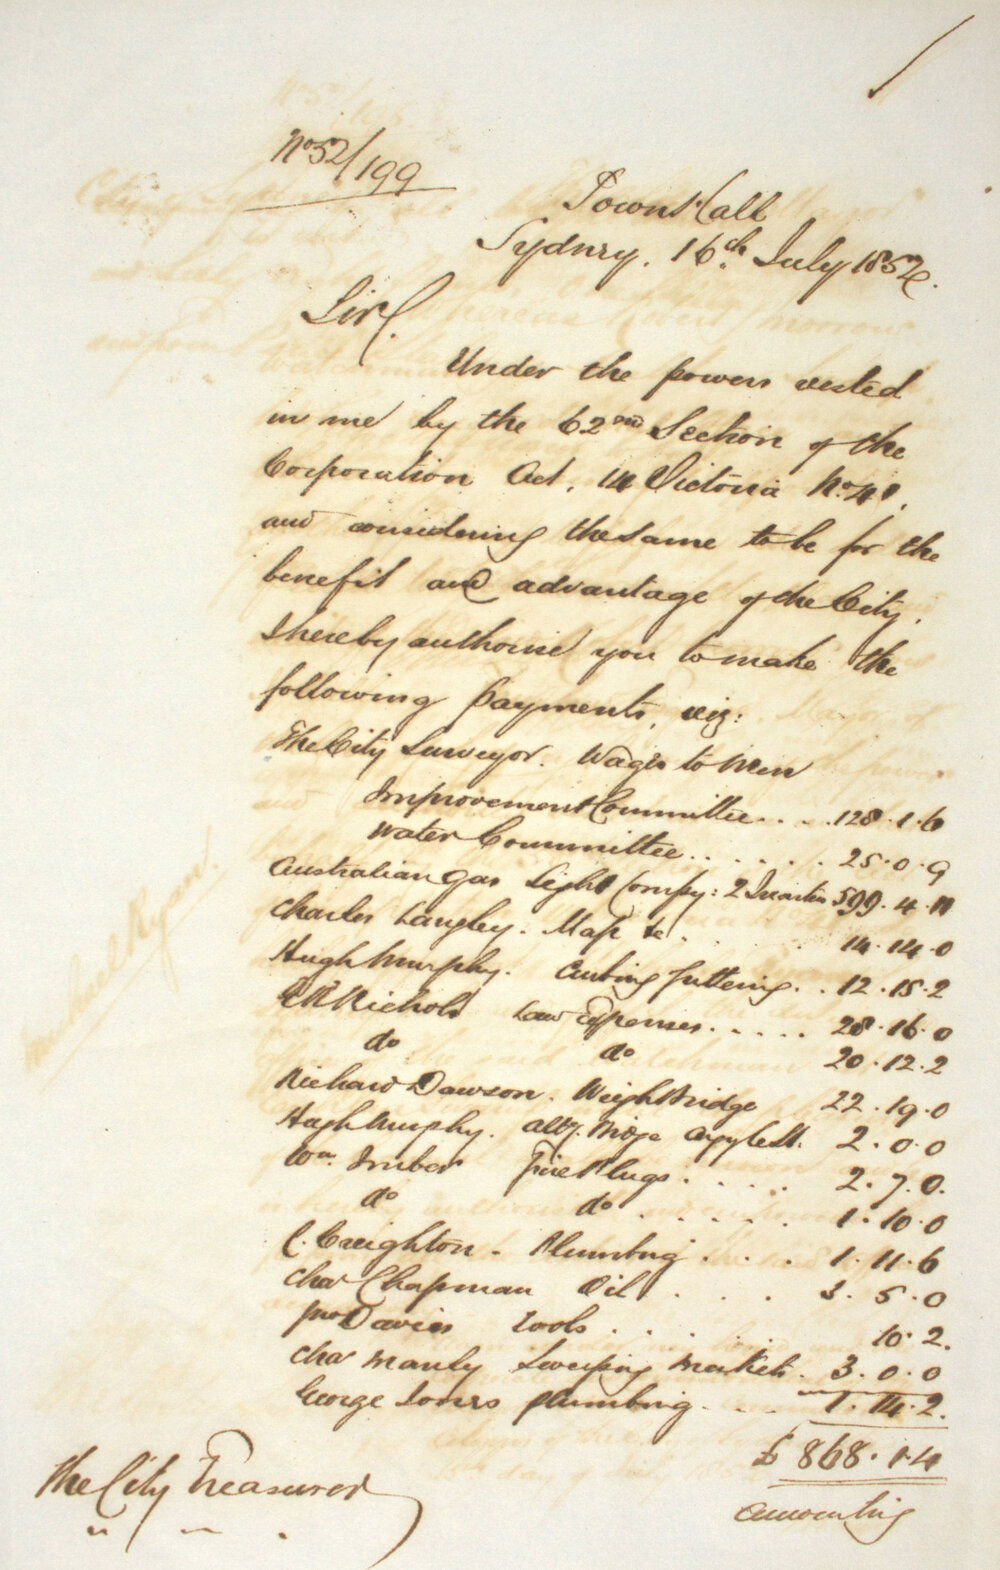 No 52/199
Town Hall
Sydney. 16th July 1852.
Sir,
Under the powers vested
in me by the 62nd Section of the
Corporation Act, 14 Victoria No. 41,
and considering the same to be for the
benefit and advantage of the City,
I hereby authorise you to make the
following payments, viz:
The City Surveyor. Wages to Men
Improvement Committee . . . . 128. 1. 6
Water Committee . . . . . . 25. 0. 9
Australian Gas Light Compy: 2 Quarters 599. 4. 11
Charles Langley. Map &c. . . . . 14. 14. 0
Hugh Murphy. Curbing guttering . . 12. 15. 2
G R Nichols Law Expenses . . . . . 28. 16. 0
do do 20. 12. 2
Richard Dawson. Weigh Bridge 22. 19. 0
Hugh Murphy. Bridge Argyle St. 2. 0. 0
Wm. Imber Fire Plugs . . . . 2. 7. 0.
do do . . . . . 1. 10. 0
C. Creighton. Plumbing . . . 1. 11. 6
Chas Chapman Oil . . . . 3. 5. 0
Jno Davies Tools . . . . . 10. 2.
Chas Manly Sweeping Markets. 3. 0. 0
George Jones plumbing . . . 1. 14. 2.
£ 868. 1. 4
amounting
The City Treasurer